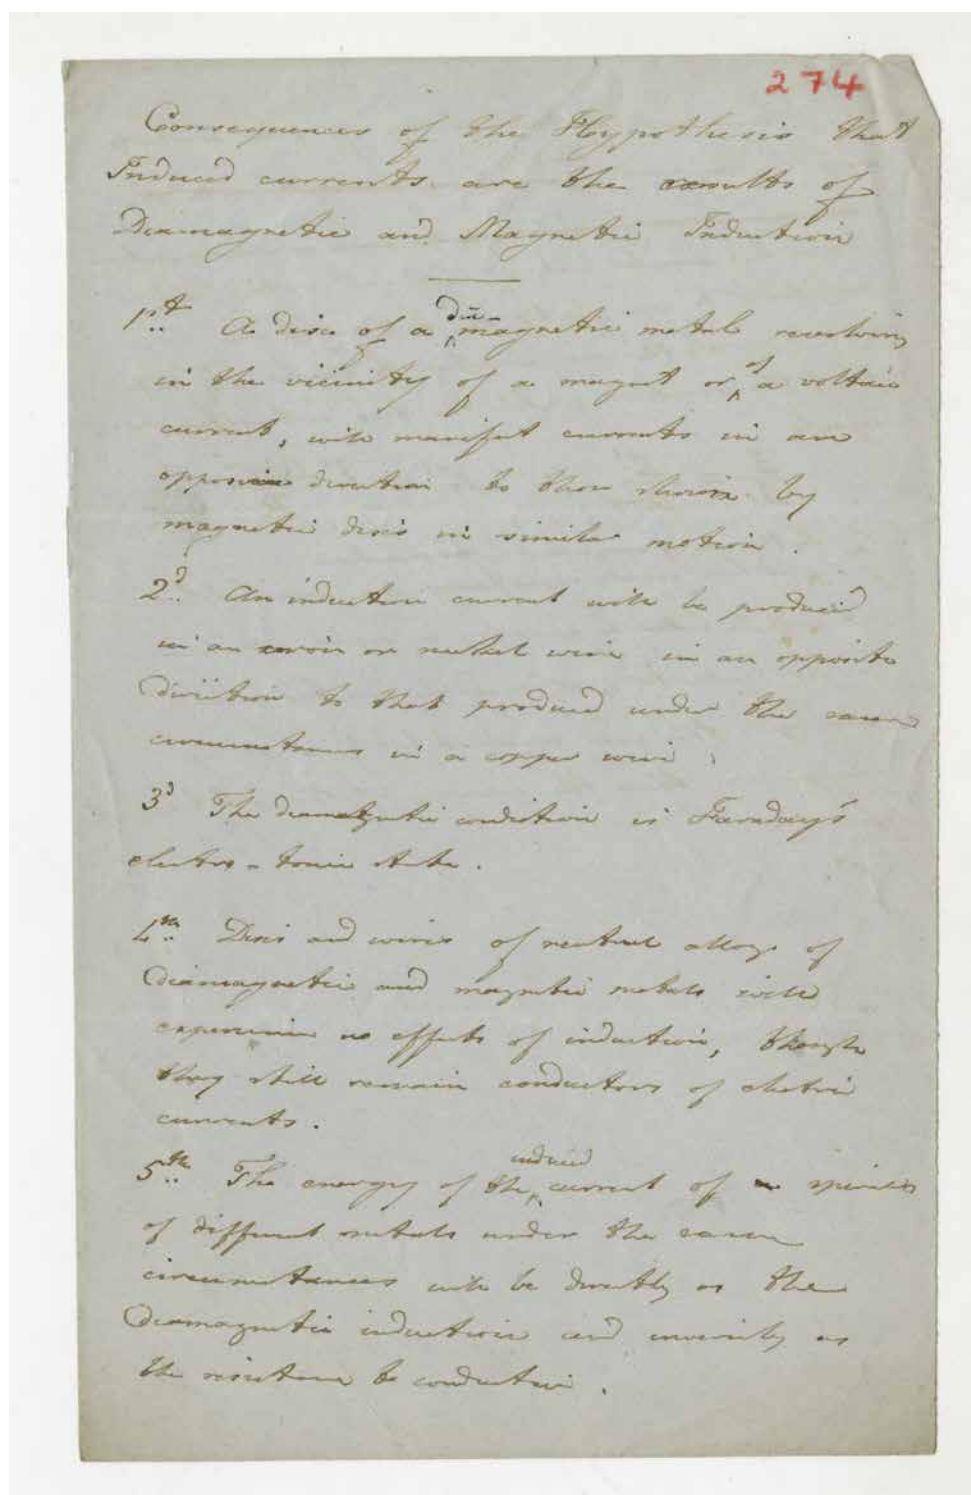 274
Consequences of the Hypothesis that
Induced currents are the results of
Diamagnetic and Magnetic Induction
1st. A disc of a dia-magnetic metal revolving
in the vicinity of a magnet or of a voltaic
current, will manifest currents in an
opposite direction to those shown by
magnetic discs in similar motion.
2d. An induction current will be produced
in an iron or nickel wire in an opposite
direction to that produced under the same
circumstances in a copper wire.
3d The diamagnetic condition is Faraday's
electro-tonic state.
4th. Discs and wires of neutral alloys of
diamagnetic and magnetic metals will
experience no effects of induction, though
they still remain conductors of electric
currents.
5th. The energy of the induced current of spirals
of different metals under the same
circumstances will be directly as the
diamagnetic induction and inversely as
the resistance to conduction.